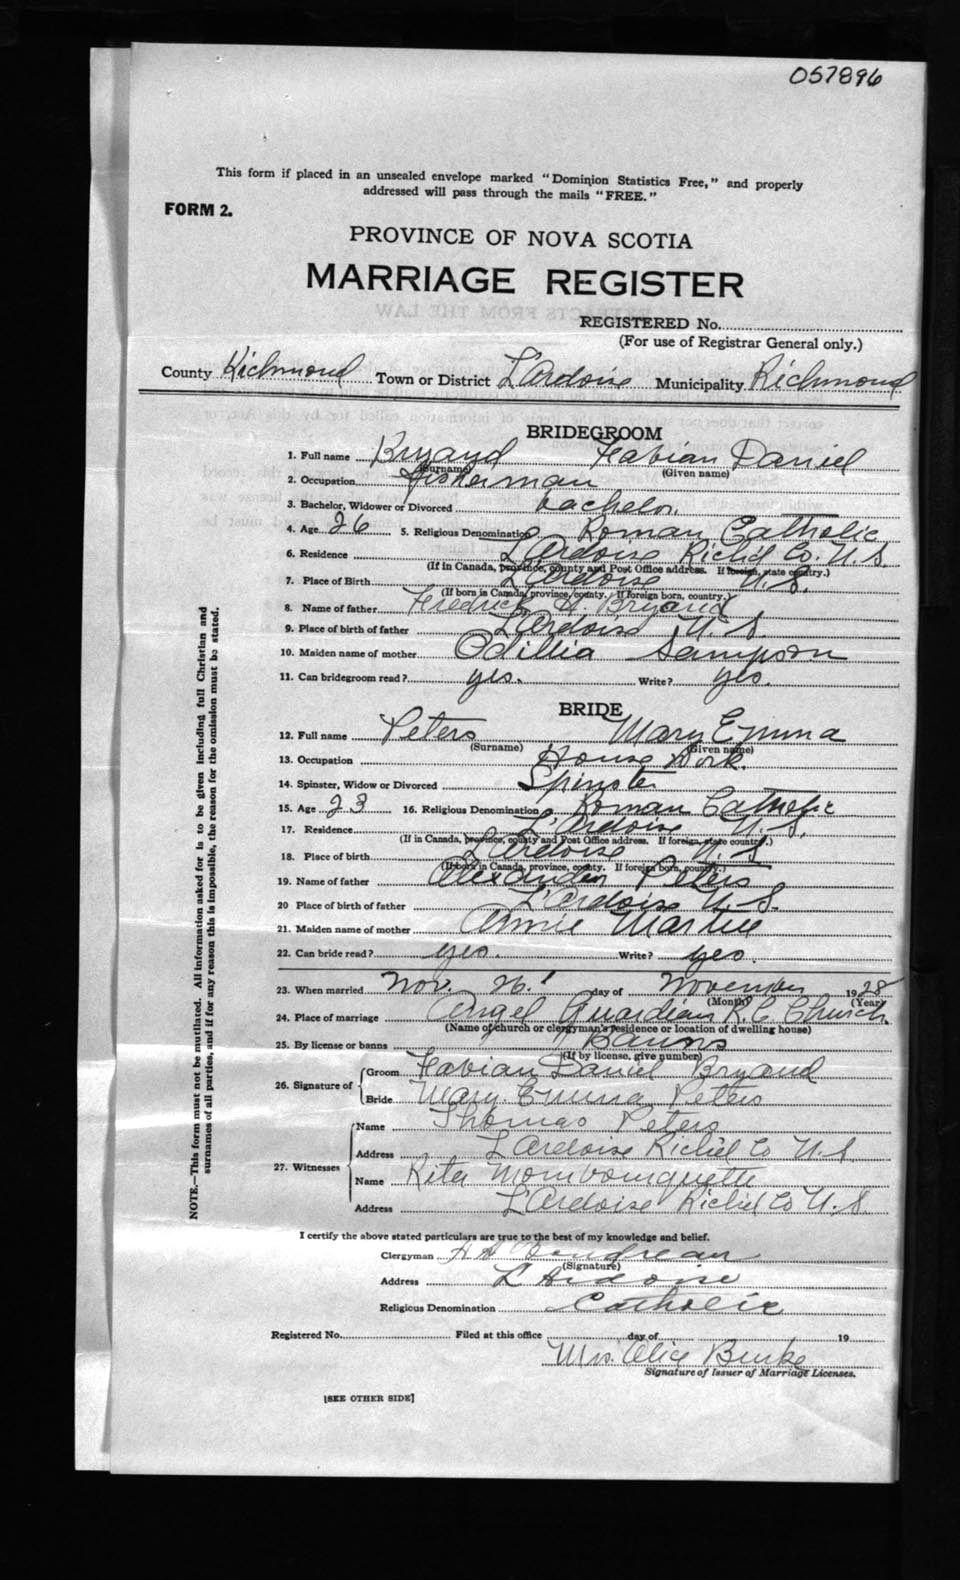 057896
This form if placed in an unsealed envelope marked "Dominion Statistics Free," and properly
addressed will pass through the mails "FREE."
FORM 2.
PROVINCE OF NOVA SCOTIA
MARRIAGE REGISTER
REGISTERED No.
(For use of Registrar General only.)
County Richmond Town or District L'Ardoise Municipality Richmond
BRIDEGROOM
1. Full name Bryand Fabian Daniel
(Surname) (Given name)
2. Occupation Fisherman
3. Bachelor, Widower or Divorced bachelor.
4. Age 26 5. Religious Denomination Roman Catholic
6. Residence L'Ardoise Rich'd Co. N.S.
(If in Canada, province, county and Post Office address. If foreign, state country.)
7. Place of Birth L'Ardoise N.S.
(If born in Canada, province, county. If foreign born, country.)
8. Name of father Fredrick A. Bryand
9. Place of birth of father L'Ardoise N.S.
10. Maiden name of mother Odillia Sampson
11. Can bridegroom read? yes. Write? yes.
BRIDE
12. Full name Peters Mary Emma
(Surname) (Given name)
13. Occupation House Work.
14. Spinster, Widow or Divorced Spinster
15. Age 23 16. Religious Denomination Roman Catholic
17. Residence L'Ardoise N.S.
(If in Canada, province, county and Post Office address. If foreign, state country.)
18. Place of birth L'Ardoise N.S
(If born in Canada, province, county. If foreign born, country.)
19. Name of father Alexander Peters
20 Place of birth of father L'Ardoise N.S.
21. Maiden name of mother Annie Martell
22. Can bride read? yes. Write? yes.
23. When married Nov. 26. day of November 1928
(Month) (Year)
24. Place of marriage Angel Guardian R.C. Church
(Name of church or clergyman's residence or location of dwelling house)
25. By license or banns Banns
(If by license, give number)
26. Signature of Groom Fabian Daniel Bryand
Bride Mary Emma Peters
27. Witnesses Name Thomas Peters
Address L'Ardoise Rich'd Co N.S
Name Rita Mombourquette
Address L'Ardoise Rich'd Co N.S.
I certify the above stated particulars are true to the best of my knowledge and belief.
Clergyman A A Boudreau
(Signature)
Address L'Ardoise
Religious Denomination Catholic
Registered No. Filed at this office day of 19
Mrs. Alice Burke
Signature of Issuer of Marriage Licenses.
[SEE OTHER SIDE]
NOTE.—This form must not be mutilated. All information asked for is to be given including full Christian and
surnames of all parties, and if for any reason this is impossible, the reason for the omission must be stated.